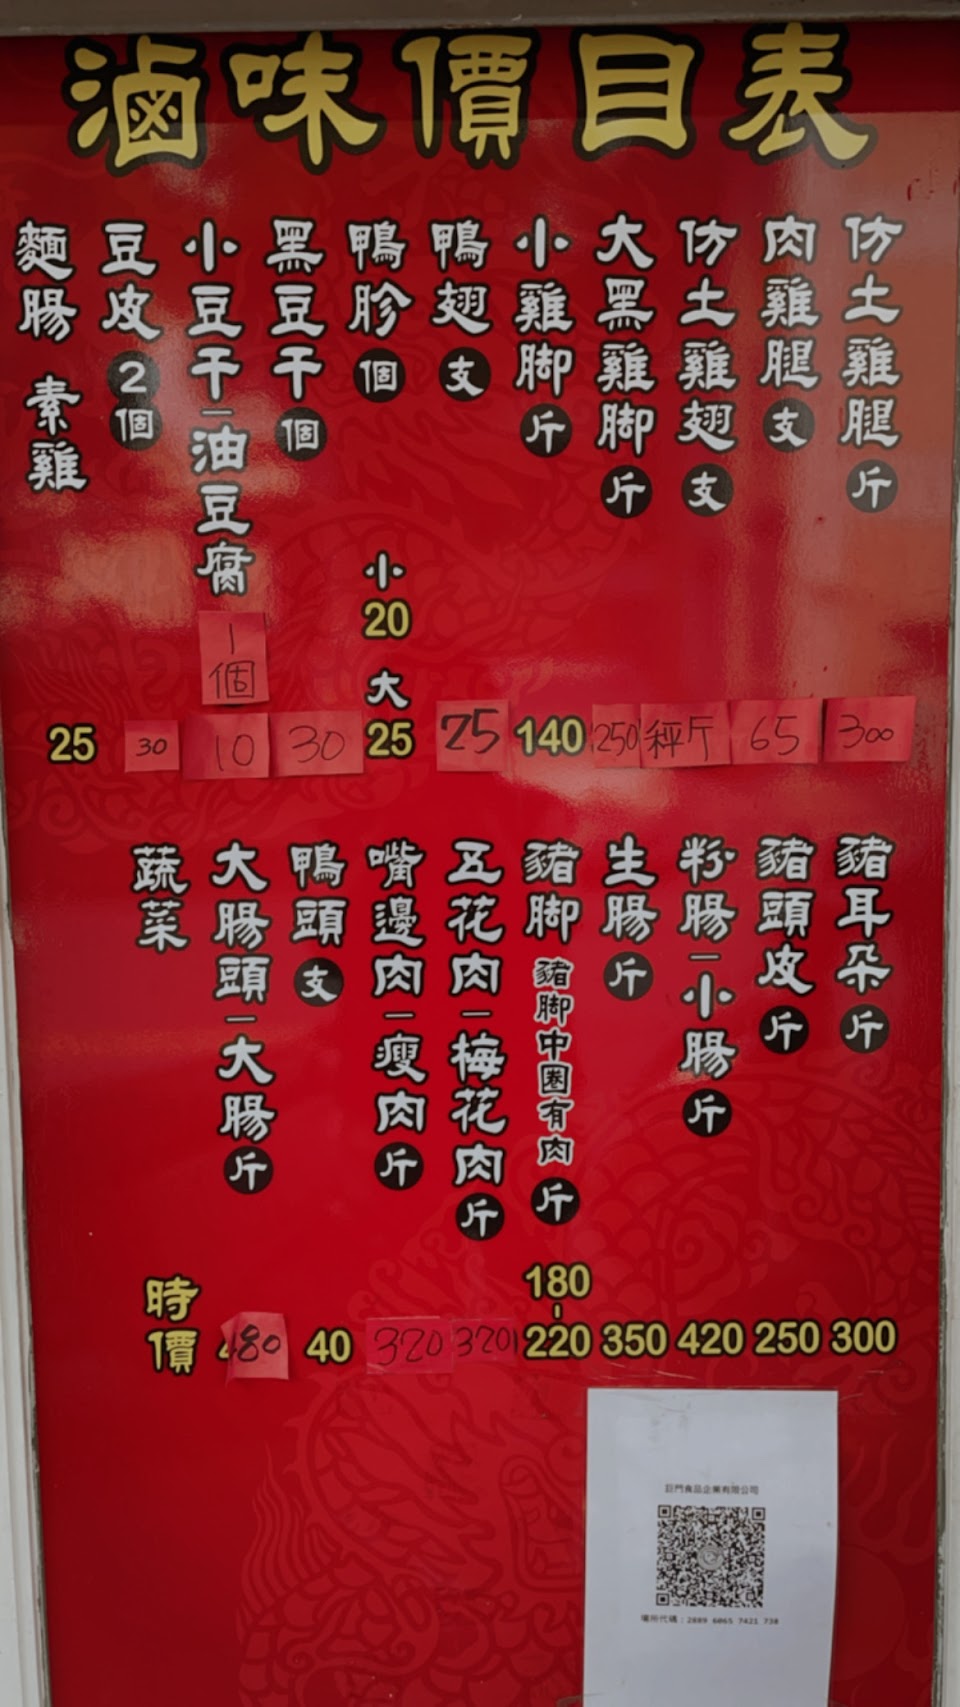 滷味價目表
仿土雞腿斤
300
肉雞腿支
65
仿土雞翅支
秤斤
大黑雞脚斤
250
小雞脚斤
140
鴨翅支
25
鴨胗個
小20
大25
黑豆干個
30
小豆干－油豆腐
1個
10
豆皮2個
30
麵腸 素雞
25
豬耳朵斤
300
豬頭皮斤
250
粉腸－小腸斤
420
生腸斤
350
豬脚 豬脚中圈有肉斤
180-220
五花肉－梅花肉斤
320
嘴邊肉－瘦肉斤
320
鴨頭支
40
大腸頭－大腸斤
480
蔬菜
時價
巨門食品企業有限公司
場所代碼：2889 6065 7421 738